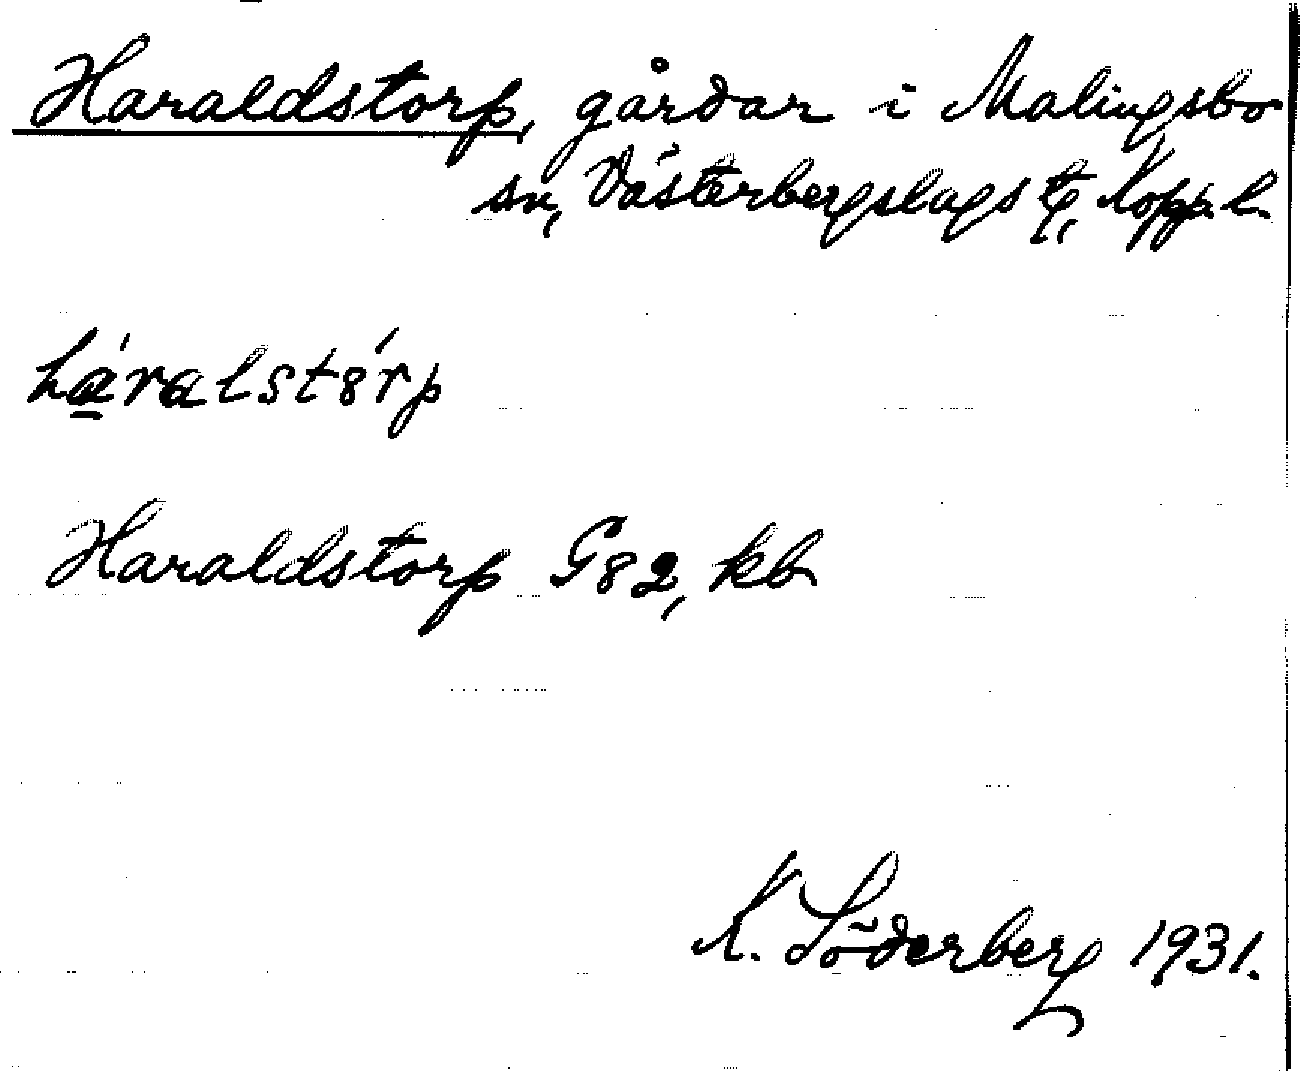 Haraldstorp, gårdar i Malingsbo
sn, Västerbergslags tg, Kopp. l.
há̱ralstó̀rp
Haraldstorp G82, kb
K. Söderberg 1931.